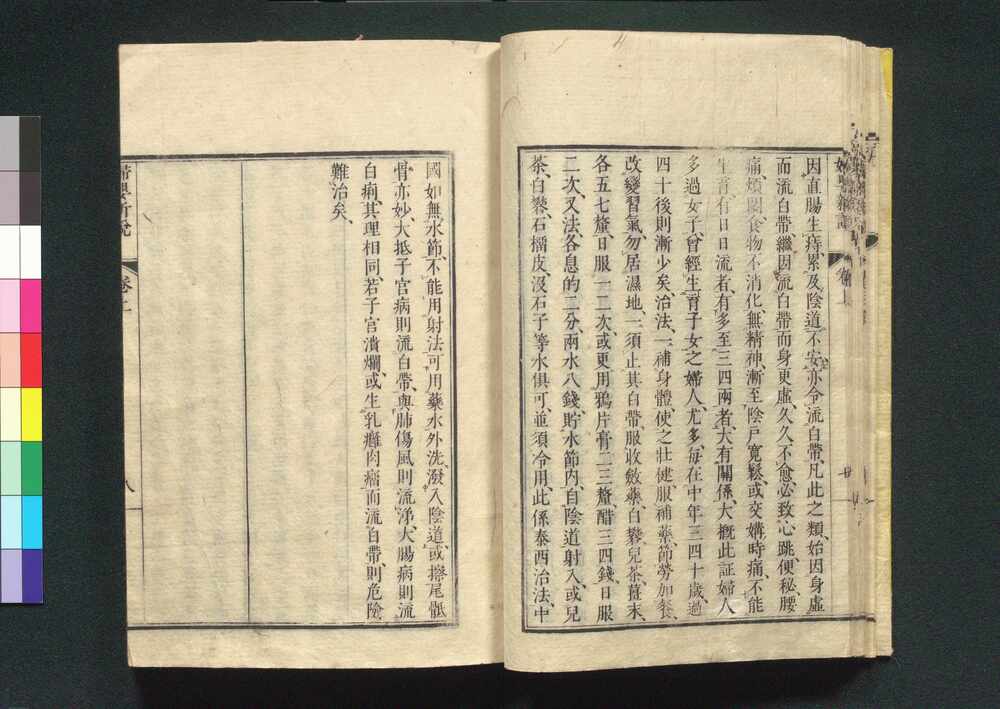 因直腸生痔、累及陰道不安、亦令流白帶、凡此之類、始因身虛
而流白帶、繼因流白帶而身更虛、久久不愈、必致心跳便秘、腰
痛、煩悶、食物不消化、無精神、漸至陰戶寬鬆、或交媾時痛、不能
生育、有日日流者、有多至三四兩者、大有關係、大槪此証婦人
多過女子、曾經生育子女之婦人、尤多、每在中年三四十歲、過
四十後則漸少矣、治法、一補身體、使之壯健、服補藥、節勞加餐、
改變習氣、勿居濕地、一須止其白帶、服收斂藥、白礬兒茶薑末、
各五七釐、日服一二次、或更用鴉片膏二三釐、醋三四錢、日服
二次、又法、各息的二分、兩水八錢、貯水節內、自陰道射入、或兒
茶、白礬、石榴皮、沒石子等水俱可、並須冷用、此係泰西治法、中
國如無水節、不能用射法、可用藥水外洗、潑入陰道、或擦尾骶
骨亦妙、大抵子宮病則流白帶、與肺傷風則流涕、大腸病則流
白痢、其理相同、若子宮潰爛、或生乳癰肉瘤而流白帶、則危險
難治矣、
卷二
八